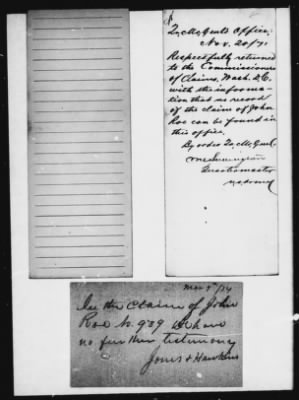 Q. M. Genl's Office,
Nov. 20/71
Respectfully returned
to the Commissioners
of Claims, Wash. D.C.
with the informa-
tion that no record
of the claim of John
Roe can be found in
this office.
By order Q. M. Genl.
Quartermaster
Mar 5/74
In the claim of John
Roe No. 909 we have
no further testimony
Jones & Hawkins